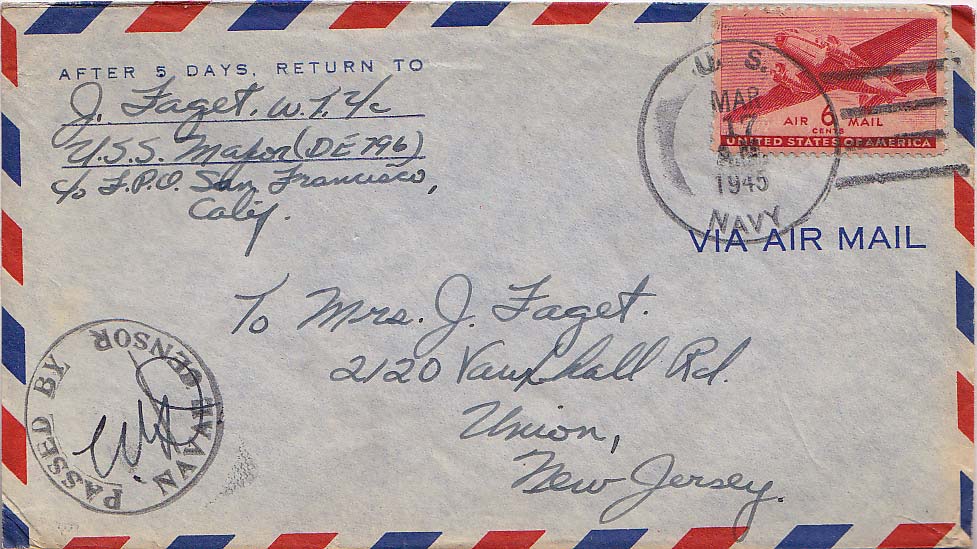 AFTER 5 DAYS, RETURN TO
J. Faget. W.T. 3/c
U.S.S. Major (DE 796)
c/o F.P.O. San Francisco,
Calif.
U. S.
MAR
17
A.M.
1945
NAVY
AIR 6 MAIL
CENTS
UNITED STATES OF AMERICA
VIA AIR MAIL
To Mrs. J. Faget.
2120 Vauxhall Rd.
Union,
New Jersey.
PASSED BY
NAVAL CENSOR